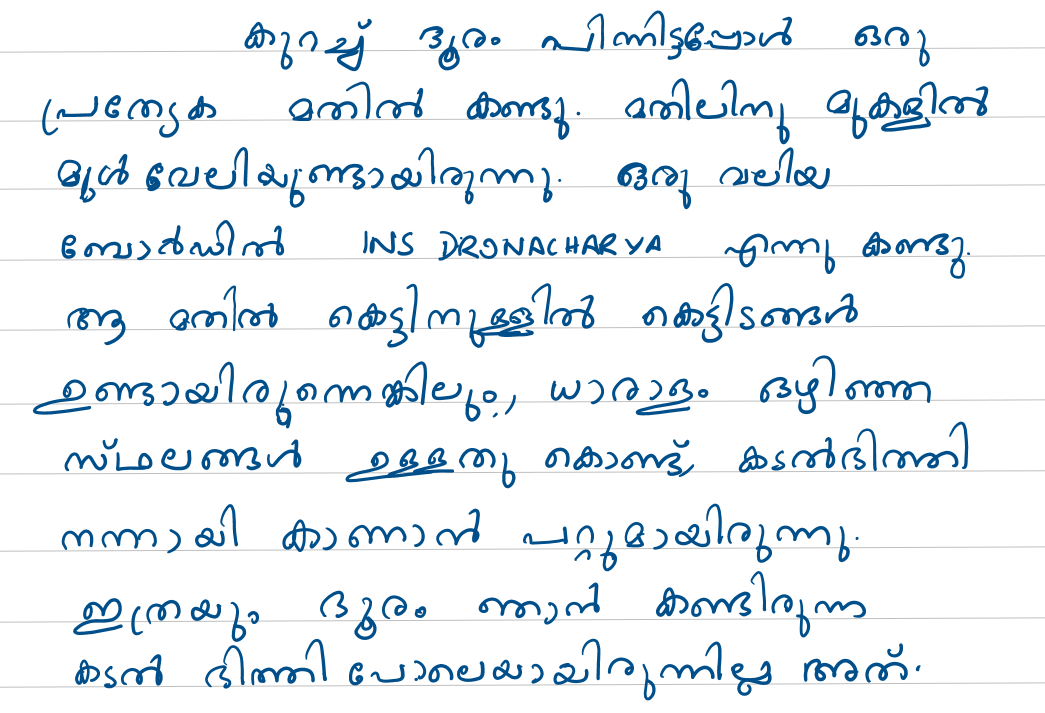 കുറച്ച് ദൂരം പിന്നിട്ടപ്പോൾ ഒരു
പ്രത്യേക മതിൽ കണ്ടു. മതിലിനു മുകളിൽ
മുൾ വേലിയുണ്ടായിരുന്നു. ഒരു വലിയ
ബോർഡിൽ INS DRONACHARYA എന്നു കണ്ടു.
ആ മതിൽ കെട്ടിനുള്ളിൽ കെട്ടിടങ്ങൾ
ഉണ്ടായിരുന്നെങ്കിലും, ധാരാളം ഒഴിഞ്ഞ
സ്ഥലങ്ങൾ ഉള്ളതു കൊണ്ട്, കടൽഭിത്തി
നന്നായി കാണാൻ പറ്റുമായിരുന്നു.
ഇത്രയും ദൂരം ഞാൻ കണ്ടിരുന്ന
കടൽ ഭിത്തി പോലെയായിരുന്നില്ല അത്.